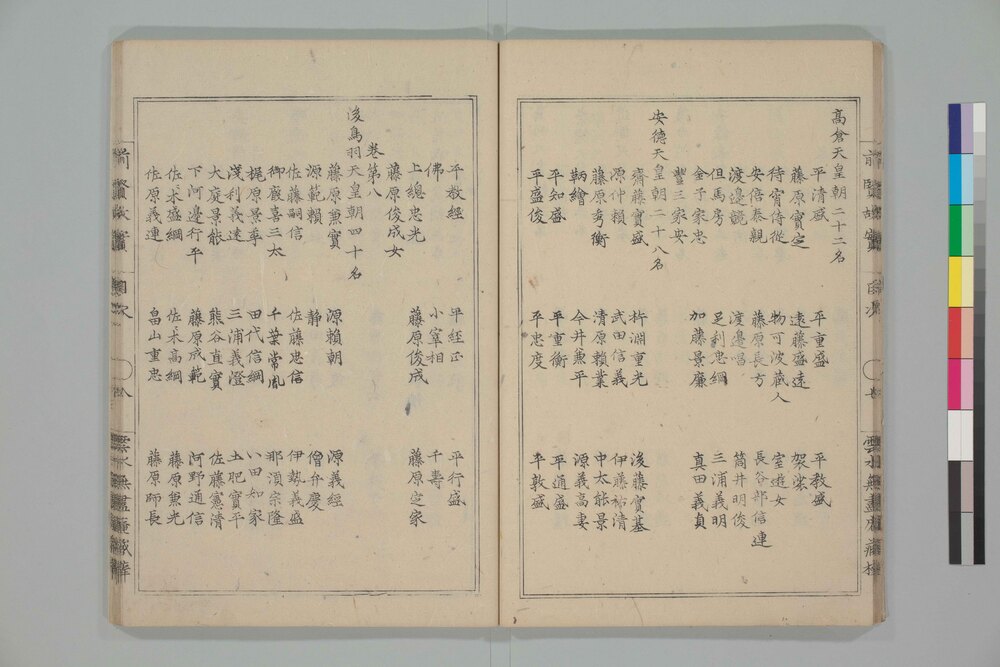 高倉天皇朝二十二名
平清盛 平重盛 平敎盛
藤原實定 遠藤盛遠 袈裟
待宵侍從 物可波蔵人 室遊女
安倍泰親 藤原長方 長谷部信連
渡邉競 渡邉唱 筒井明俊
但馬房 足利忠綱 三浦義明
金子家忠 加藤景廉 真田義貞
豐三家安
安德天皇朝二十八名
齋藤實盛 杵淵重光 後藤實基
源仲賴 武田信義 伊藤祐清
藤原秀衡 清原賴業 中太能景
鞆繪 今井兼平 源義高妻
平知盛 平重衡 平通盛
平盛俊 平忠度 平敦盛
平敎經 平經正 平行盛
佛 小宰相 千壽
上總忠光 藤原俊成 藤原定家
藤原俊成女
卷第八
後鳥羽天皇朝四十名
藤原兼實 源賴朝 源義經
源範賴 靜 僧弁慶
佐藤嗣信 佐藤忠信 伊勢義盛
御厩喜三太 千葉常胤 那須宗隆
梶原景季 田代信綱 八田知家
淺利義遠 三浦義澄 土肥實平
大庭景能 熊谷直實 佐藤憲清
下河邊行平 藤原成範 阿野通信
佐〻木盛綱 佐〻木高綱 藤原兼光
佐原義連 畠山重忠 藤原師長